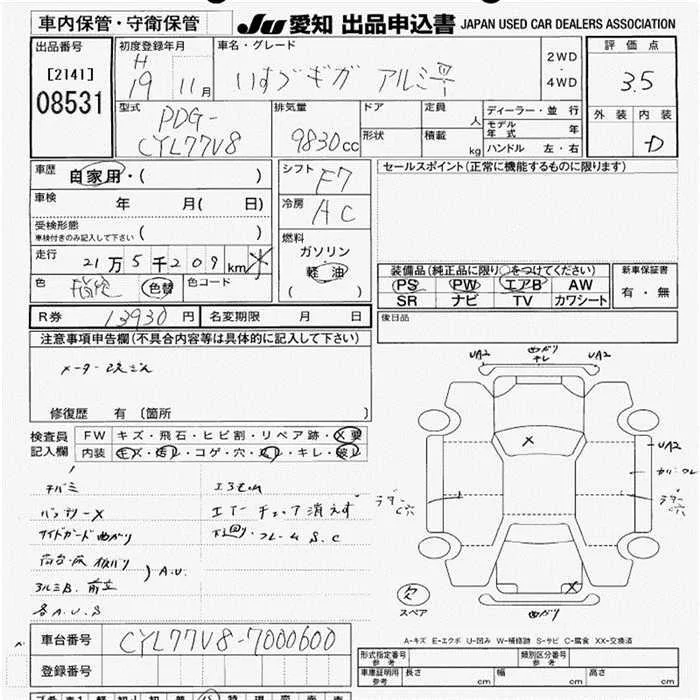 車内保管・守衛保管
JU 愛知 出品申込書 JAPAN USED CAR DEALERS ASSOCIATION
出品番号
[2141]
08531
初度登録年月
H
19 年 11 月
車名・グレード
いすゞギガ アルミ平
2WD
・
4WD
評価点
3.5
外装 内装
D
型式
PDG-
CYL77V8
排気量
9830cc
ドア
形状
定員
人
積載
kg
ディーラー・並行
モデル年式 年
ハンドル 左・右
車歴
自家用・( )
車検 年 月( 日)
受検形態
車検付きのみ記入して下さい ( )
走行
21万5千209km
色
色替
色コード
シフト
F7
冷房
AC
燃料
ガソリン
・
軽油
( )
セールスポイント(正常に機能するものに限ります)
装備品(純正品に限り○をつけてください)
PS PW エアB AW
SR ナビ TV カワシート
新車保証書
有・無
後日品
R券 13930円
名変期限 月 日
注意事項申告欄(不具合内容等は具体的に記入して下さい)
メーター改ざん
修復歴 有 〔箇所 〕
検査員
記入欄
FW キズ・飛石・ヒビ割・リペア跡・X要
内装 キズ・汚レ・コゲ・穴・スレ・キレ・破レ
バッテリーX
エアーチェック消えず
サイドガード曲がり
下回り・フレーム S.C
A.U.
アルミB.
各A.U.S
UA2
曲がり
キレ
UA2
X
UA2
C穴
C穴
X
欠
スペア
曲がり
A-キズ E-エクボ U-凹み W-補修跡 S-サビ C-腐食 XX-交換済
車台番号 CYL77V8-7000600
登録番号
形式指定番号
参考
類別区分番号
参考
車庫証明用
参考
長さ cm 幅 cm 高さ cm